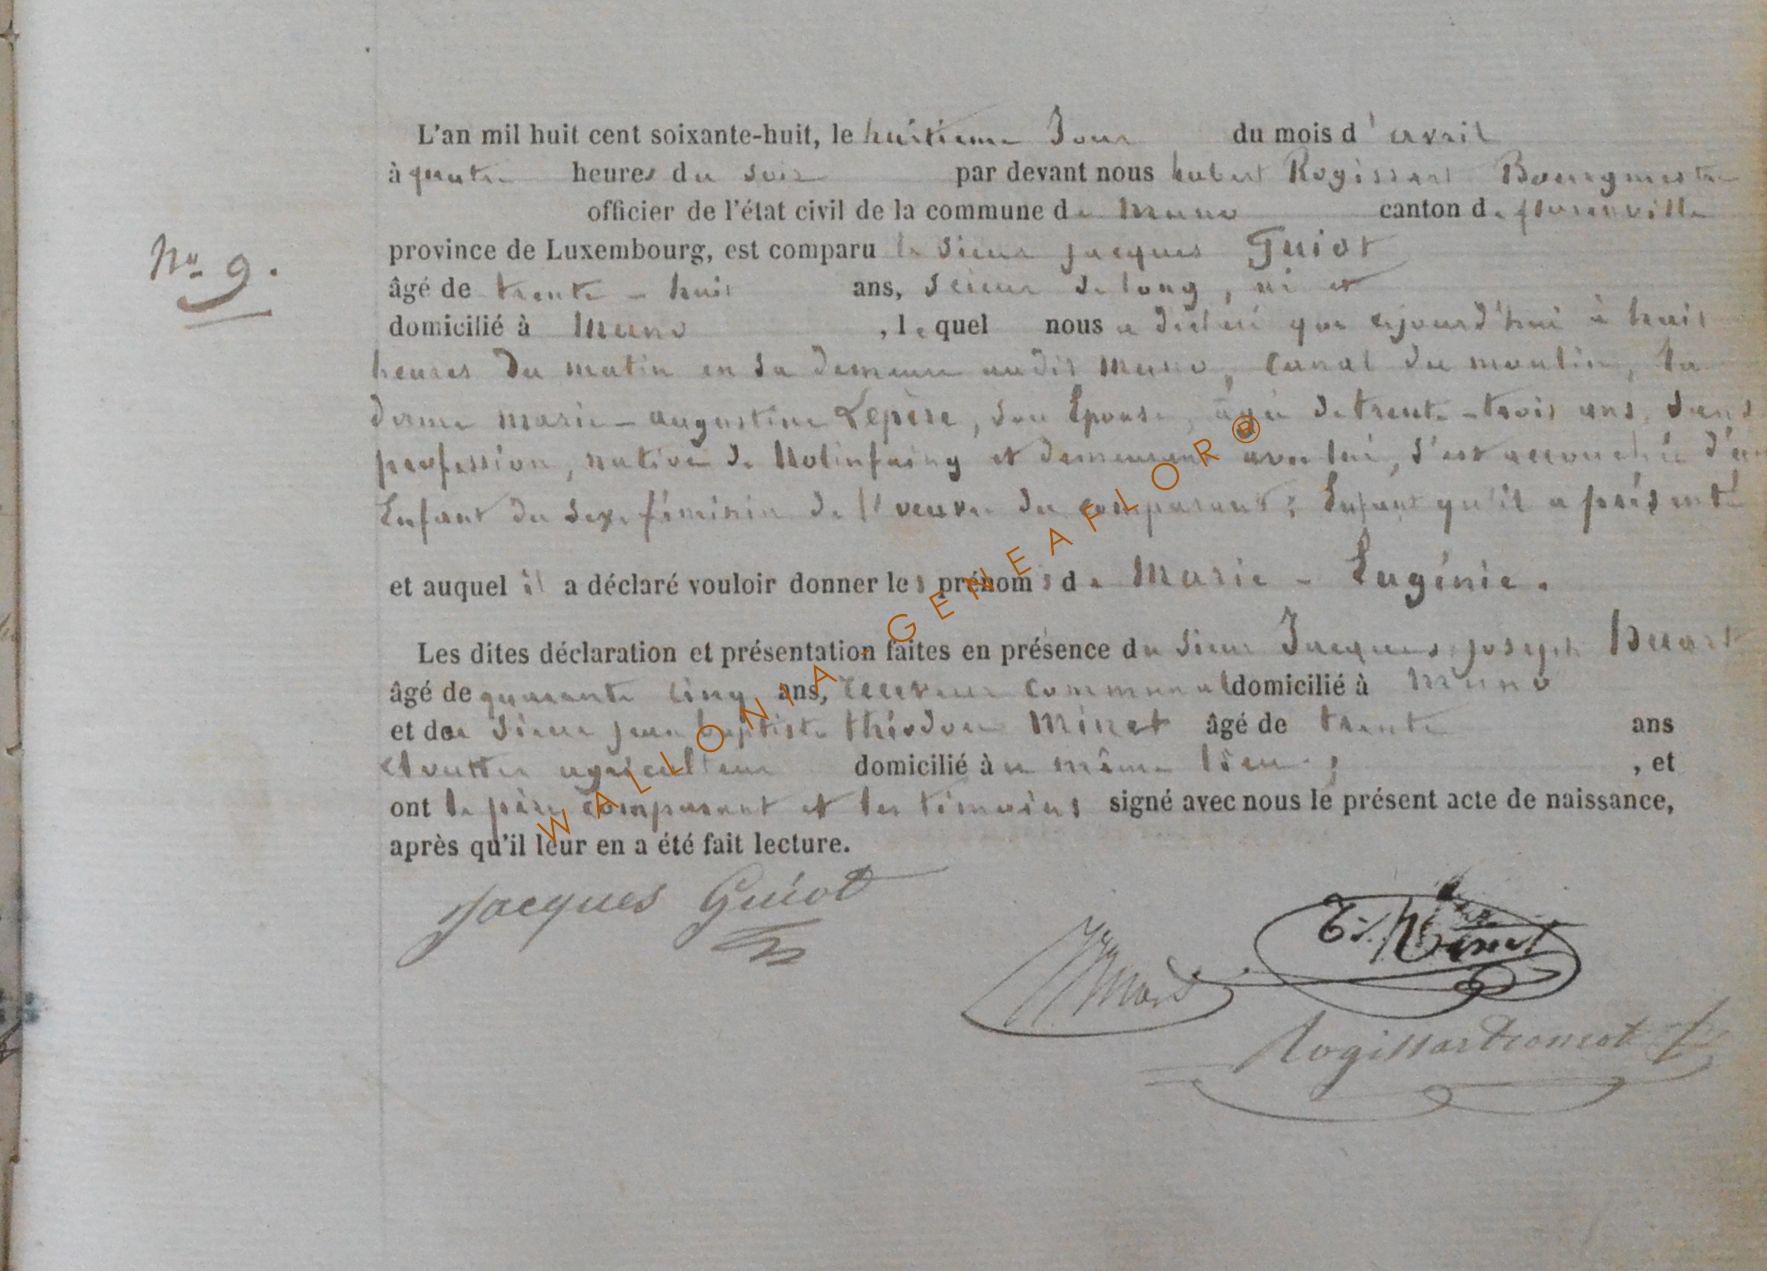 L'an mil huit cent soixante-huit, le huitieme Jour du mois d'avril
à quatre heures du soir par devant nous hubert Rogissart Bourgmestre
officier de l'état civil de la commune de Muno canton de florenville
province de Luxembourg, est comparu le Sieur jacques Guiot
No 9.
âgé de trente-huit ans, Scieur de long, né et
domicilié à Muno, lequel nous a déclaré que aujourd'hui à huit
heures du matin en sa demeure audit Muno, Canal du moulin, la
dame marie-augustine Lepère, son Epouse, agée de trente-trois ans, sans
profession, native de Nolinfaing et demeurant avec lui, s'est accouchée d'un
Enfant du sexe féminin de l'œuvre du comparant; Enfant qu'il a présenté
et auquel il a déclaré vouloir donner les prénoms de Marie-Eugénie.
Les dites déclaration et présentation faites en présence du Sieur Jacques joseph Huart
âgé de quarante cinq ans, receveur Communal domicilié à Muno
et de Sieur jean baptiste théodore Minet âgé de trente ans
agriculteur domicilié à u même lieu; , et
ont le père comparant et les témoins signé avec nous le présent acte de naissance,
après qu'il leur en a été fait lecture.
Jacques Guiot
T. Minet
Huart
Rogissart
WALLONIA - GENEAFLOR®